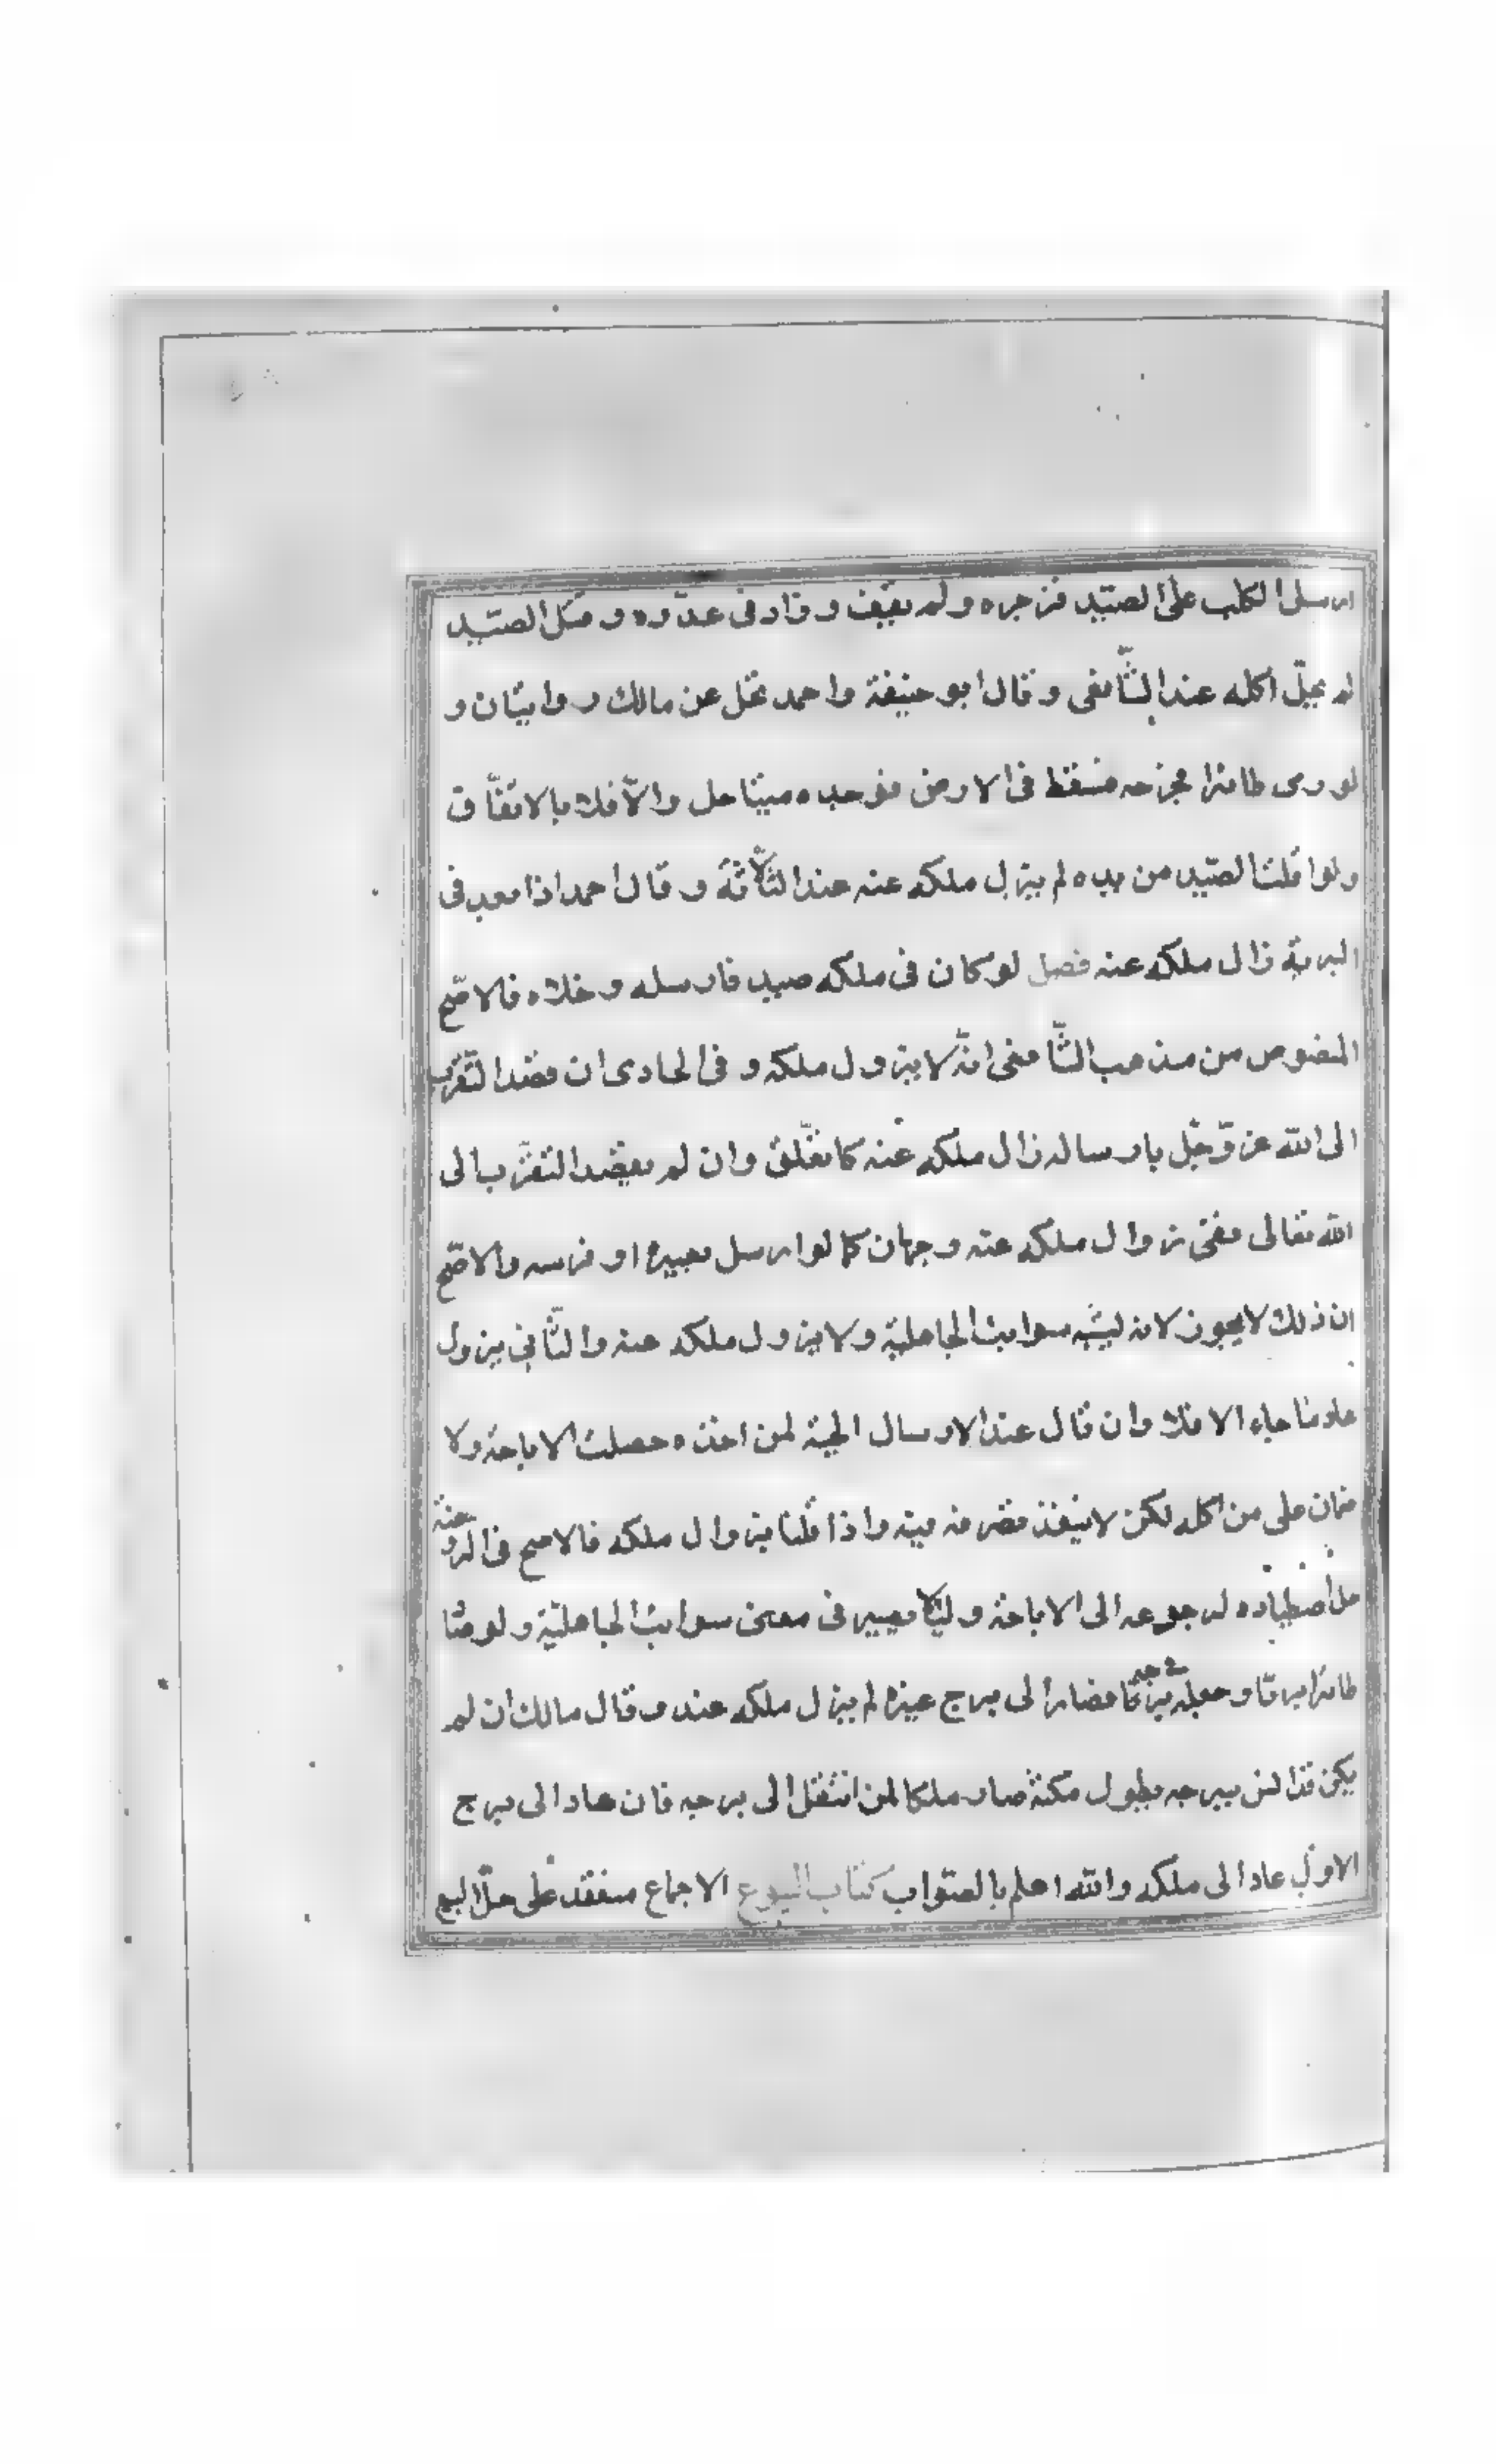 ارسل الكلب على الصيد فزجره ولم يقف وزاد فى عدوه وقتل الصيد
لم يحل اكله عند الشافعى وقال ابو حنيفة واحمد يحل عن مالك روايتان و
لو رمى طائرا فجرحه فسقط فى الارض فوجده ميتا حل والّا فلا بالاتفاق
ولو افلت الصيد من يده لم يزل ملكه عنه عند الثلاثة وقال احمد اذا بعد فى
البرية زال ملكه عنه فصل لو كان فى ملكه صيد فارسله وخلاه فالاصح
المنصوص من مذهب الشافعى انه لا يزول ملكه و فى الحاوى ان قصد التقرب
الى الله عز وجل بارساله زال ملكه عنه كا لعتق وان لم يقصد التقرب الى
الله تعالى ففى زوال ملكه عنه وجهان كما لو ارسل بعيره او فرسه والاصح
ان ذلك لا يجوز لانه ليشبه سوايب الجاهلية ولا يزول ملكه عنه والثانى يزول
فلا وان قال عند الارسال ابحته لمن اخذه حصلت الاباحة ولا
ضمان على من اكله لكن لا ينفذ تصرفه فيه واذا قلنا بزوال ملكه فالاصح فى الروضة
حل اصطياده لرجوعه الى الاباحة ولئلا يصير فى معنى سوايب الجاهلية ولو صا
طائرا بريا وجعله فى برجه فصار الى برج غيره لم يزل ملكه عنه وقال مالك ان لم
يكن قد انس ببرجه بطول مكثه صار ملكا لمن انتقل الى برجه فان عاد الى برج
الاول عاد الى ملكه والله اعلم بالصواب كتاب البيوع الاجماع منعقد على حل البيع